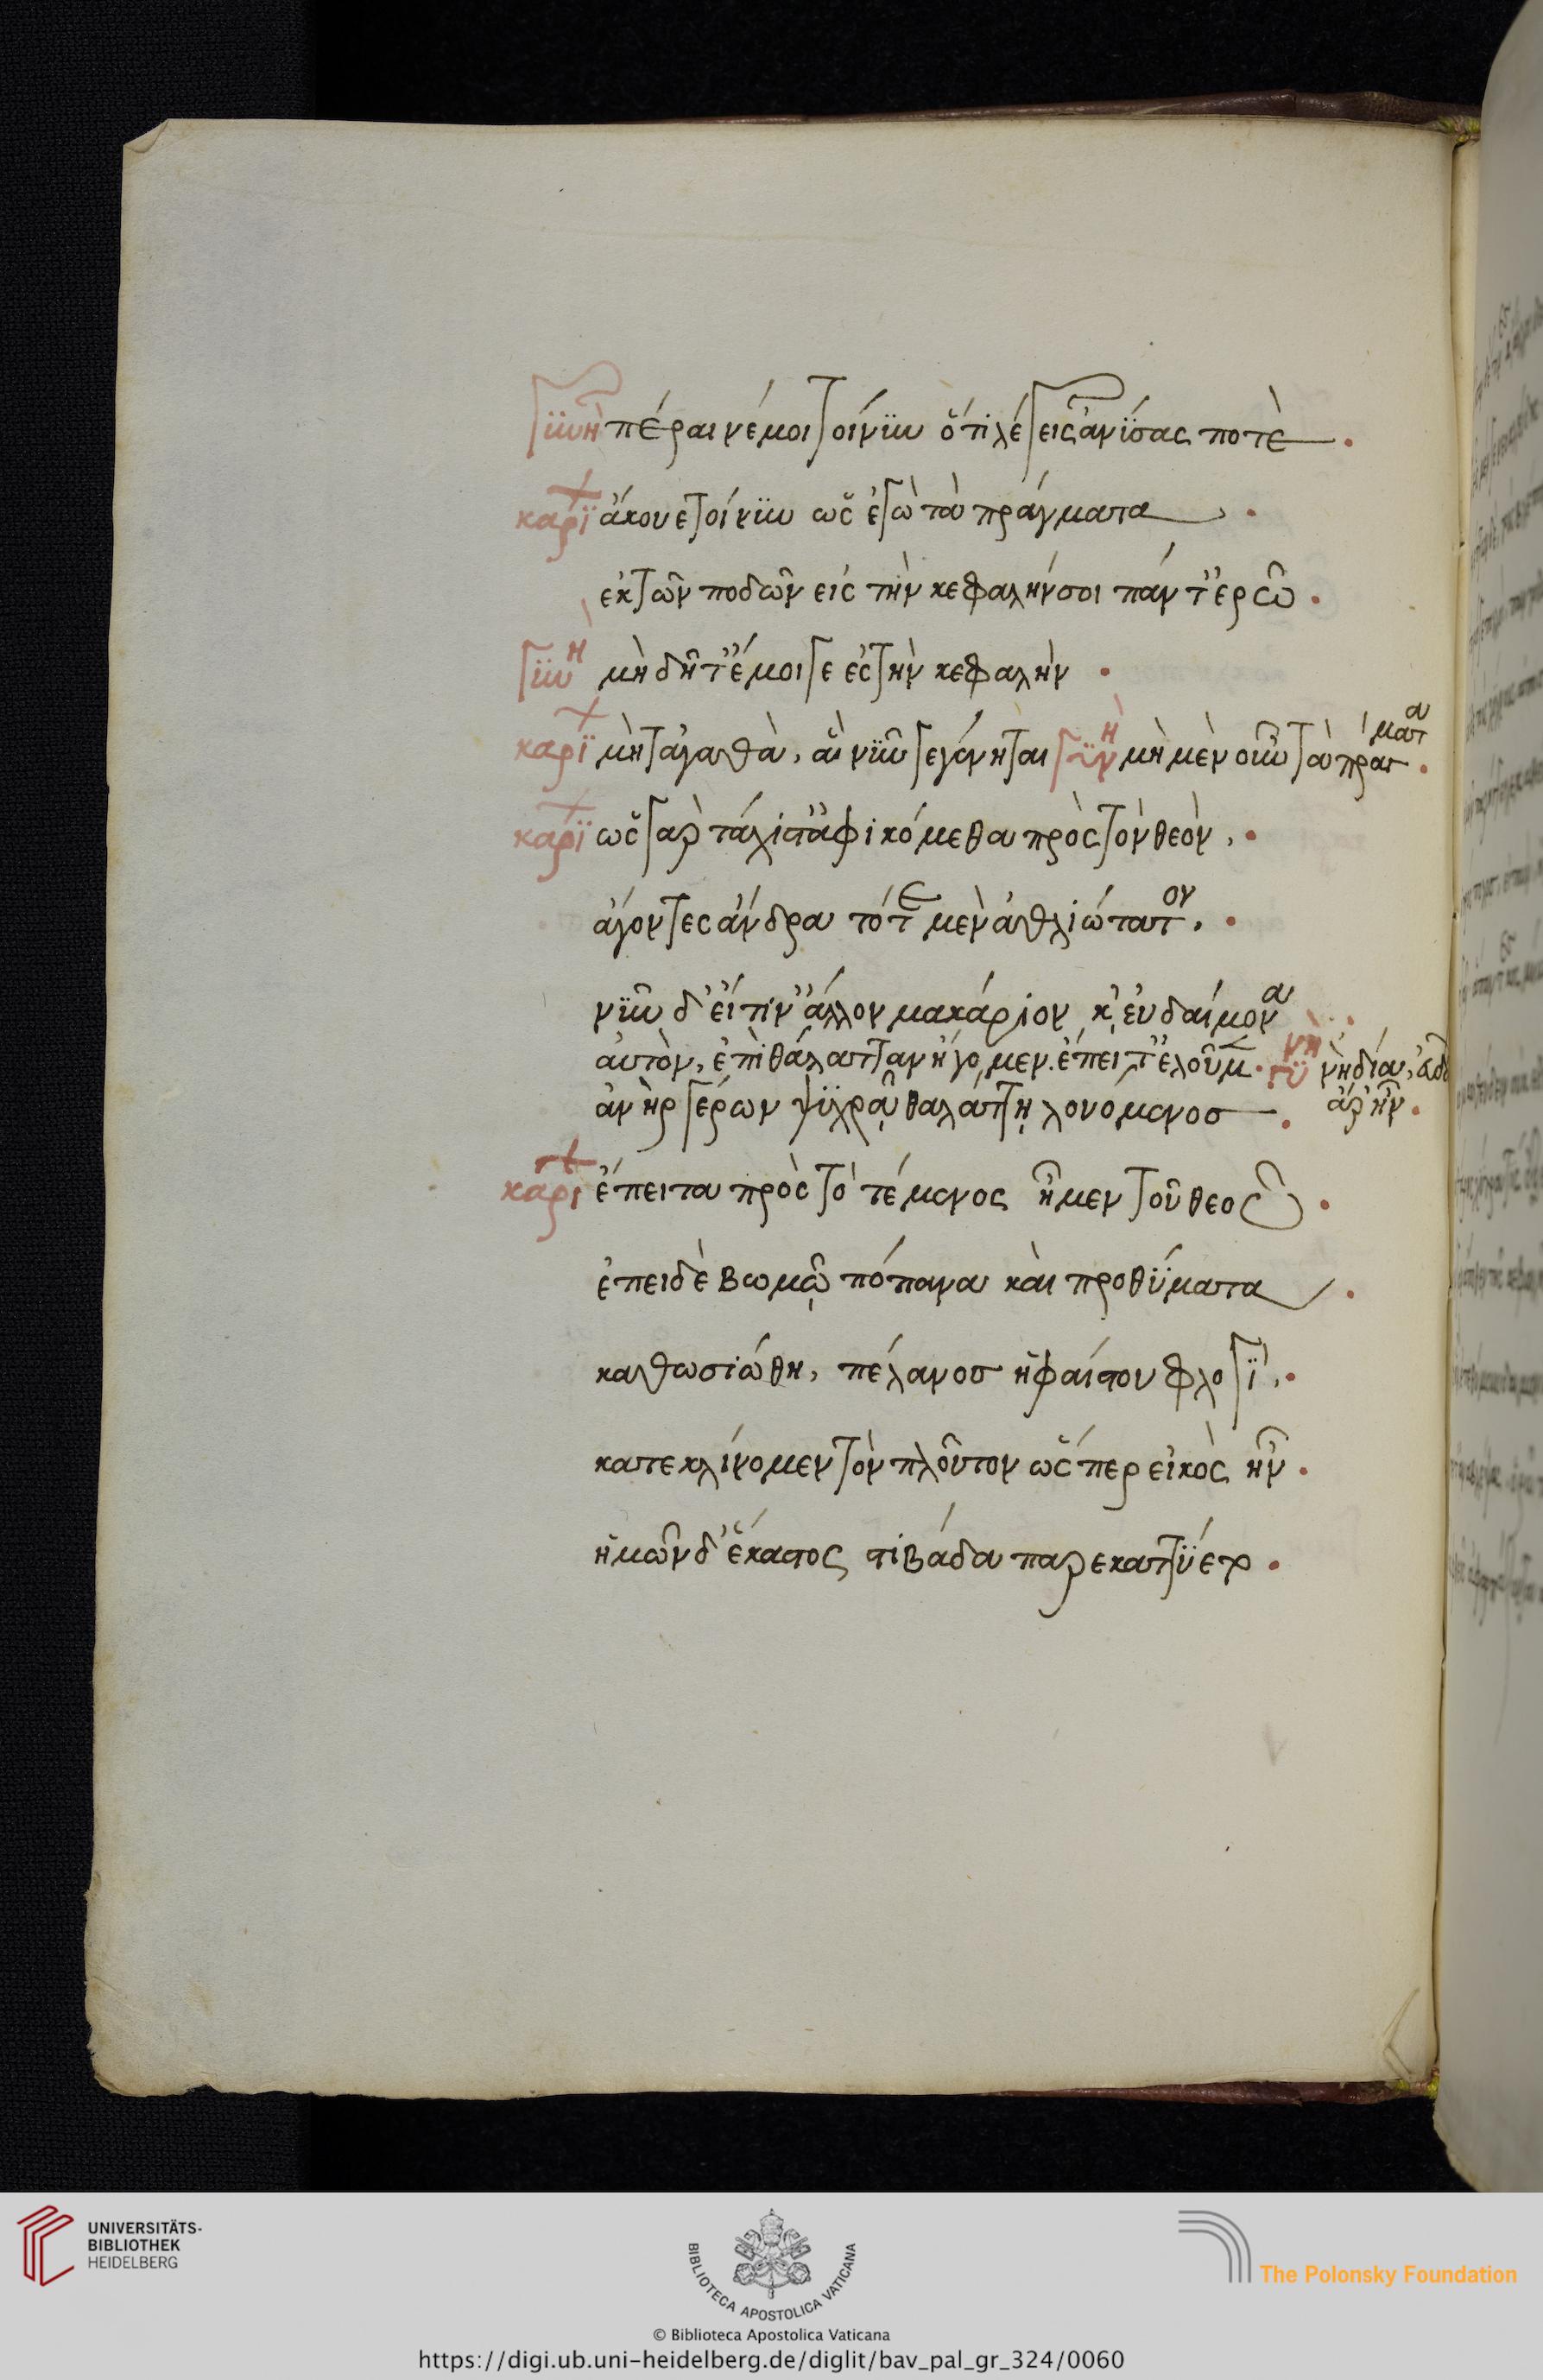 γϋνὴ πέραινέ μοι τοίνϋν ὅ τι λέγεις ἀνΐσας ποτὲ.
καρϊ ἄκουε τοίνϋν ὡς ἐγὼ τὰ πράγματα.
ἐκ τῶν ποδῶν εἰς τὴν κεφαλήν σοι πάντ' ἐρῶ.
γϋνὴ μὴ δῆτ' ἔμοιγε ἐς τὴν κεφαλὴν.
καρϊ μὴ τἀγαθὰ, ἃ νϋν γεγένηται γϋνὴ μὴ μὲν οὖν τὰ πράγματα.
καρϊ ὡς γὰρ τάχιστ' ἀφικόμεθα πρὸς τὸν θεὸν,.
ἄγοντες ἄνδρα τότε μὲν ἀθλιώτατον,.
νϋν δ' εἴ τιν' ἄλλον μακάριον κ' εὐδαίμονα.
αὐτὸν, ἐπὶ θάλατταν ἤγομεν. ἔπειτ' ἐλοῦμ. γϋνὴ νὴ δία, εὐδ
ἀνὴρ γέρων ψϋχρᾷ θαλάττῃ λουόμενος. ἄρ' ἦν.
καρι ἔπειτα πρὸς τὸ τέμενος ἦμεν τοῦ θεοῦ.
ἐπεὶ δὲ βωμῷ πόπανα καὶ προθϋματα.
καθωσιώθη, πέλανος ἡφαίστου φλογϊ,.
κατεκλίνομεν τὸν πλοῦτον ὥςπερ εἰκὸς ἦν.
ἡμῶν δ' ἕκαστος στιβάδα παρεκαττϋετο.
UNIVERSITÄTS-
BIBLIOTHEK
HEIDELBERG
BIBLIOTECA APOSTOLICA VATICANA
The Polonsky Foundation
© Biblioteca Apostolica Vaticana
https://digi.ub.uni-heidelberg.de/diglit/bav_pal_gr_324/0060